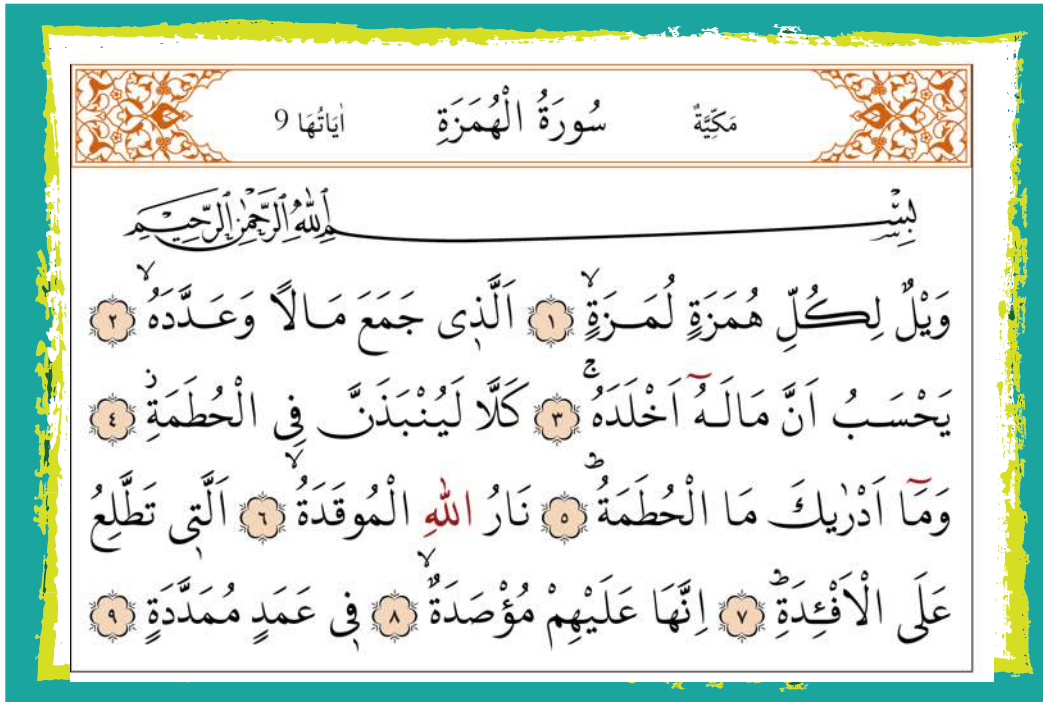 مَكِّيَّةٌ سُورَةُ الْهُمَزَةِ اٰيَاتُهَا 9
بِسْمِ اللّٰهِ الرَّحْمٰنِ الرَّحِيمِ
وَيْلٌ لِكُلِّ هُمَزَةٍ لُمَزَةٍۙ ١ اَلَّذ۪ى جَمَعَ مَالًا وَعَدَّدَهُۙ ٢
يَحْسَبُ اَنَّ مَالَهُٓ اَخْلَدَهُۚ ٣ كَلَّا لَيُنْبَذَنَّ فِى الْحُطَمَةِۘ ٤
وَمَٓا اَدْرٰيكَ مَا الْحُطَمَةُۜ ٥ نَارُ اللّٰهِ الْمُوقَدَةُۙ ٦ اَلَّت۪ى تَطَّلِعُ
عَلَى الْاَفْـِٔدَةِۜ ٧ اِنَّهَا عَلَيْهِمْ مُؤْصَدَةٌۙ ٨ ف۪ى عَمَدٍ مُمَدَّدَةٍ ٩